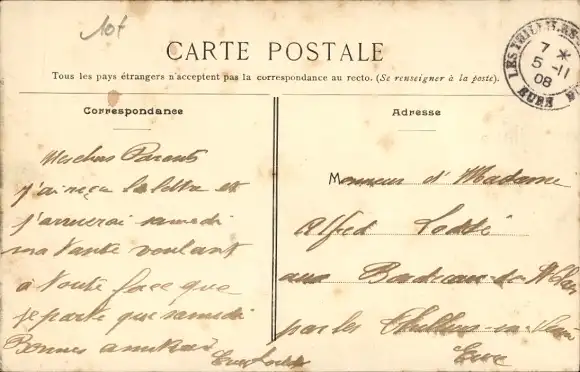 10f
CARTE POSTALE
Tous les pays étrangers n'acceptent pas la correspondance au recto. (Se renseigner à la poste).
LES THILLIERS-
7
5-11
08
EURE
Correspondance
Adresse
Mes chers Parents
j'ai reçu la lettre et
j'arriverai samedi
ma tante voulant
à toute force que
je parte que samedi
Bonnes amitiés
Monsieur et Madame
Alfred
aux Bordeaux de St Clair
par les Thilliers-en-Vexin
Eure